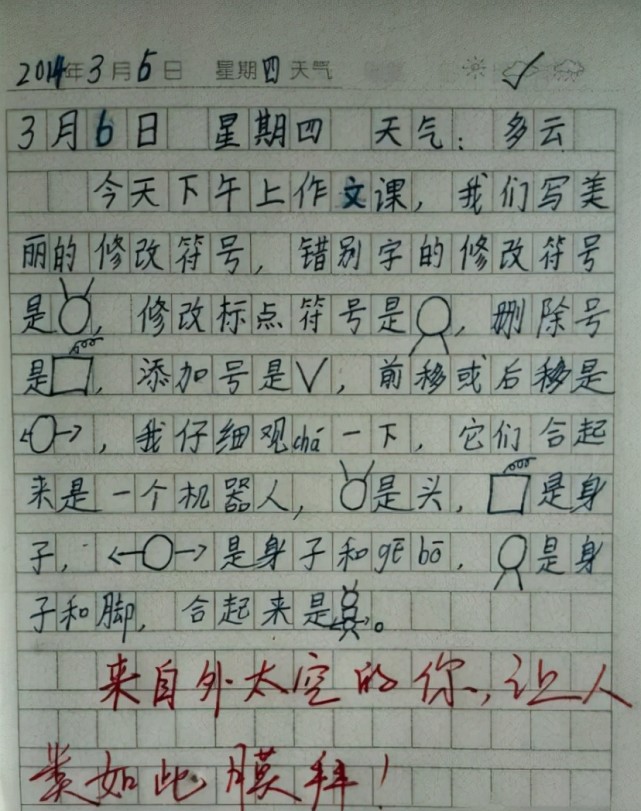 2014年3月6日 星期四 天气
3月6日 星期四 天气：多云
今天下午上作文课，我们写美
丽的修改符号，错别字的修改符号
是，修改标点符号是，删除号
是，添加号是√，前移或后移是
←○→，我仔细观chá一下，它们合起
来是一个机器人，是头，是身
子，←○→是身子和gē bō，是身
子和脚，合起来是。
来自外太空的你，让人
类如此膜拜！